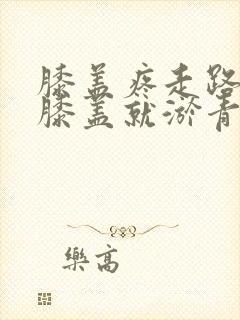 膝盖疼走路
膝盖就淤青
樂高